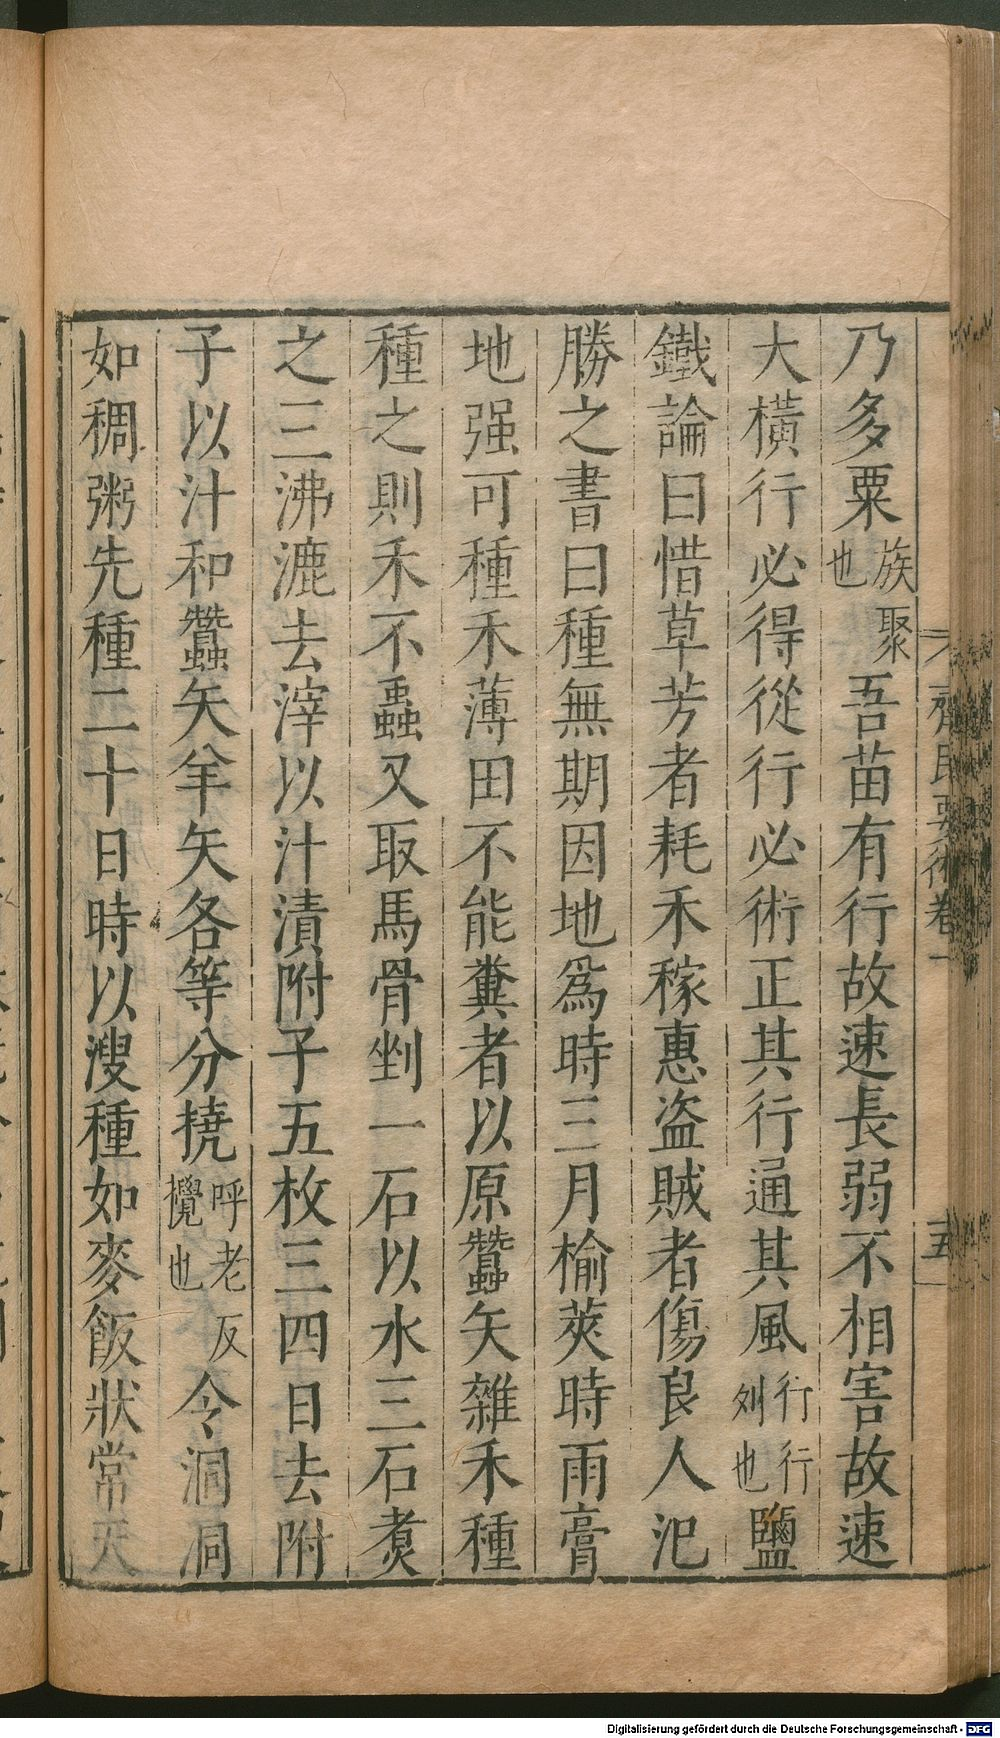 乃多粟族聚也吾苗有行故速長弱不相害故速
大橫行必得從行必術正其行通其風行行列也鹽
鐵論曰惜草芳者耗禾稼惠盜賊者傷良人氾
勝之書曰種無期因地爲時三月榆莢時雨膏
地强可種禾薄田不能糞者以原蠶矢雜禾種
種之則禾不蟲又取馬骨剉一石以水三石煑
之三沸漉去滓以汁漬附子五枚三四日去附
子以汁和蠶矢羊矢各等分撓呼老反攪也令洞洞
如稠粥先種二十日時以溲種如麥飯狀常天
齊民要術卷一
十五
Digitalisierung gefördert durch die Deutsche Forschungsgemeinschaft - DFG